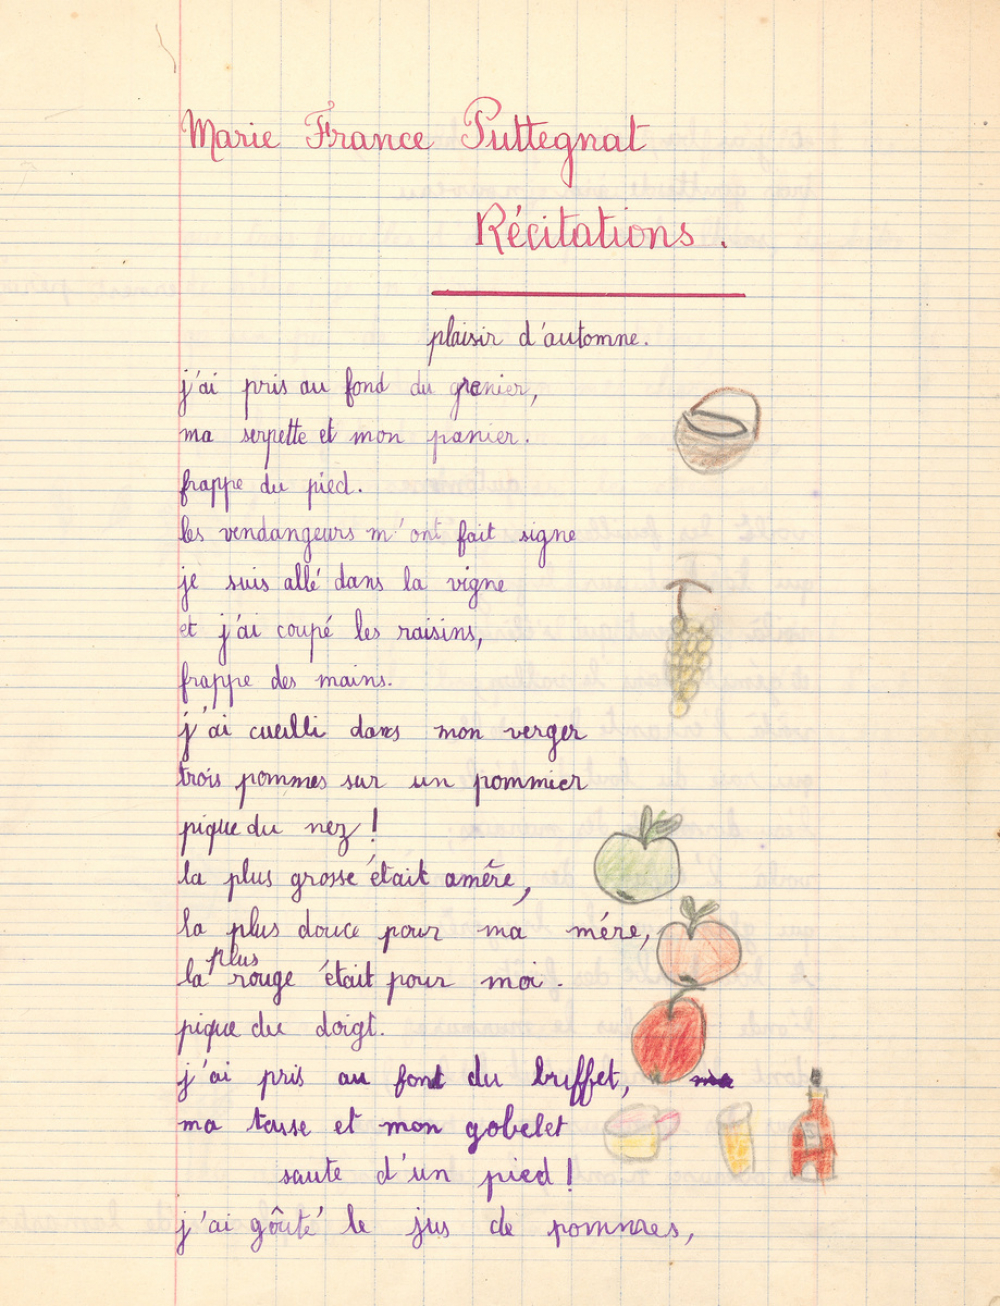 Marie France Puttegnat
Récitations.
plaisir d'automne.
j'ai pris au fond du grenier,
ma serpette et mon panier.
frappe du pied.
les vendangeurs m'ont fait signe
je suis allé dans la vigne
et j'ai coupé les raisins,
frappe des mains.
j'ai cueilli dans mon verger
trois pommes sur un pommier
pique du nez !
la plus grosse était amère,
la plus douce pour ma mére,
la plus rouge était pour moi.
pique du doigt.
j'ai pris au font du buffet,
ma tasse et mon gobelet
saute d'un pied !
j'ai goûté le jus de pommes,